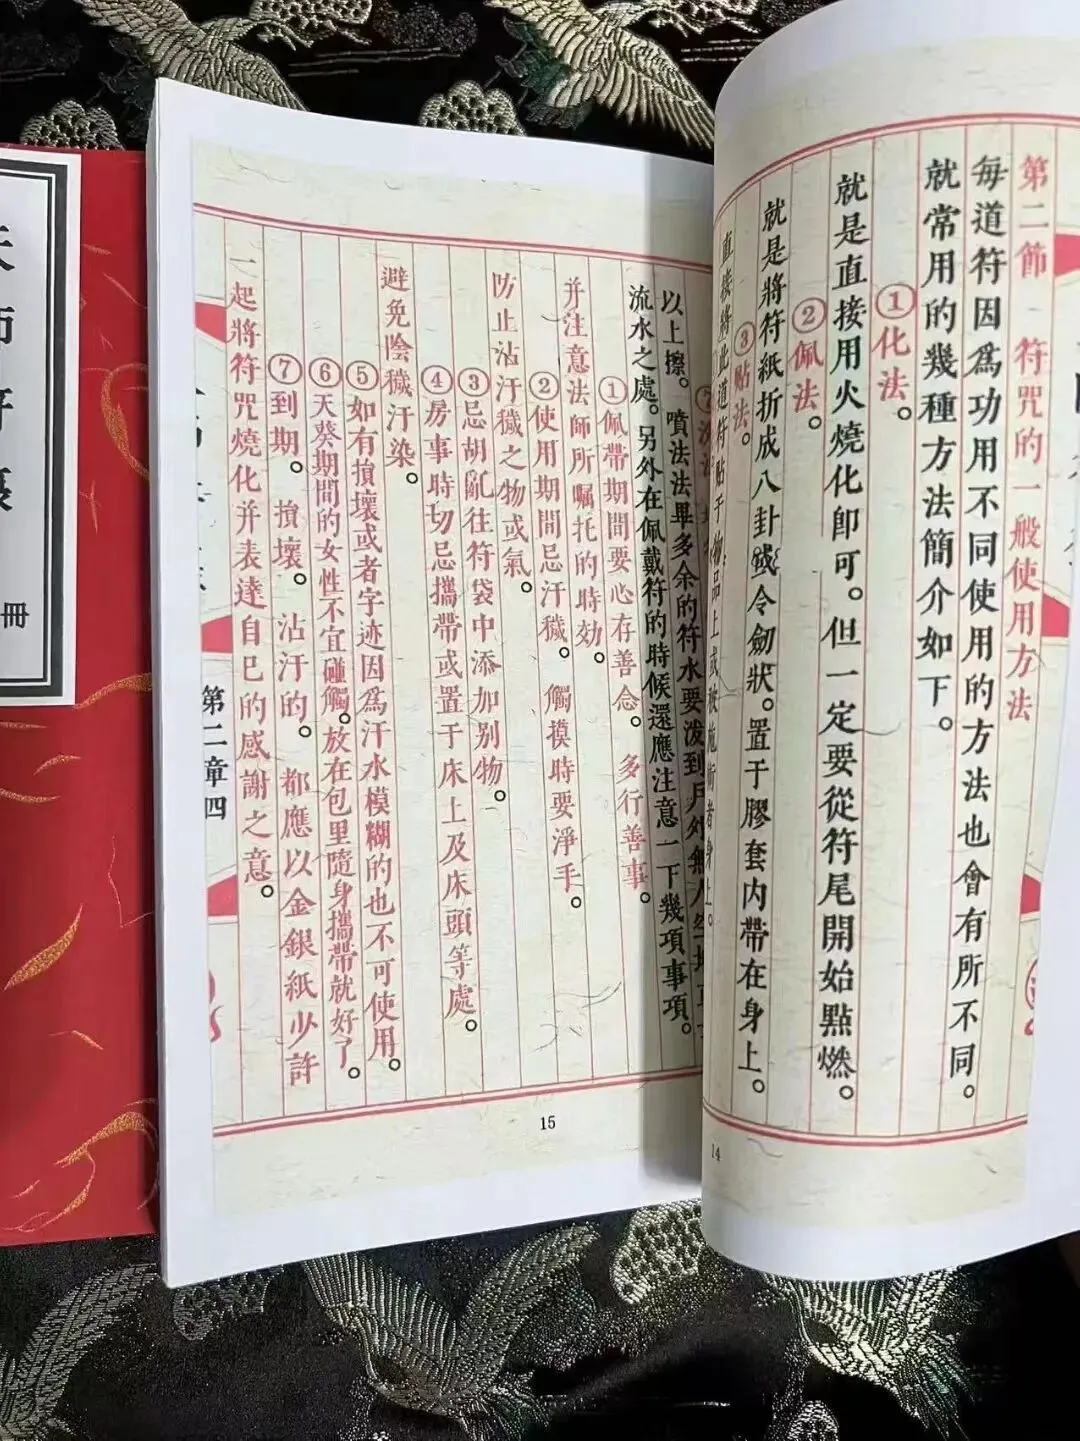 第二節 符咒的一般使用方法
每道符因爲功用不同使用的方法也會有所不同。
就常用的幾種方法簡介如下。
①化法。
就是直接用火燒化即可。但一定要從符尾開始點燃。
②佩法。
就是將符紙折成八卦或令劍狀。置于膠套内帶在身上。
③貼法。
直接將此道符貼于物品上或被施術者身上。
14
以上擦。噴法法畢多余的符水要泼到戶外無人空地
流水之處。另外在佩戴符的時候還應注意一下幾項事項。
①佩帶期間要心存善念。多行善事。
并注意法師所囑托的時効。
②使用期間忌汙穢。觸摸時要淨手。
防止沾汙穢之物或氣。
③忌胡亂往符袋中添加别物。
④房事時切忌攜帶或置于床上及床頭等處。
避免陰穢汙染。
⑤如有損壞或者字迹因爲汗水模糊的也不可使用。
⑥天葵期間的女性不宜碰觸。放在包里隨身攜帶就好了。
⑦到期。損壞。沾汙的。都應以金銀紙少許
一起將符咒燒化并表達自已的感謝之意。
第二章四
15
冊